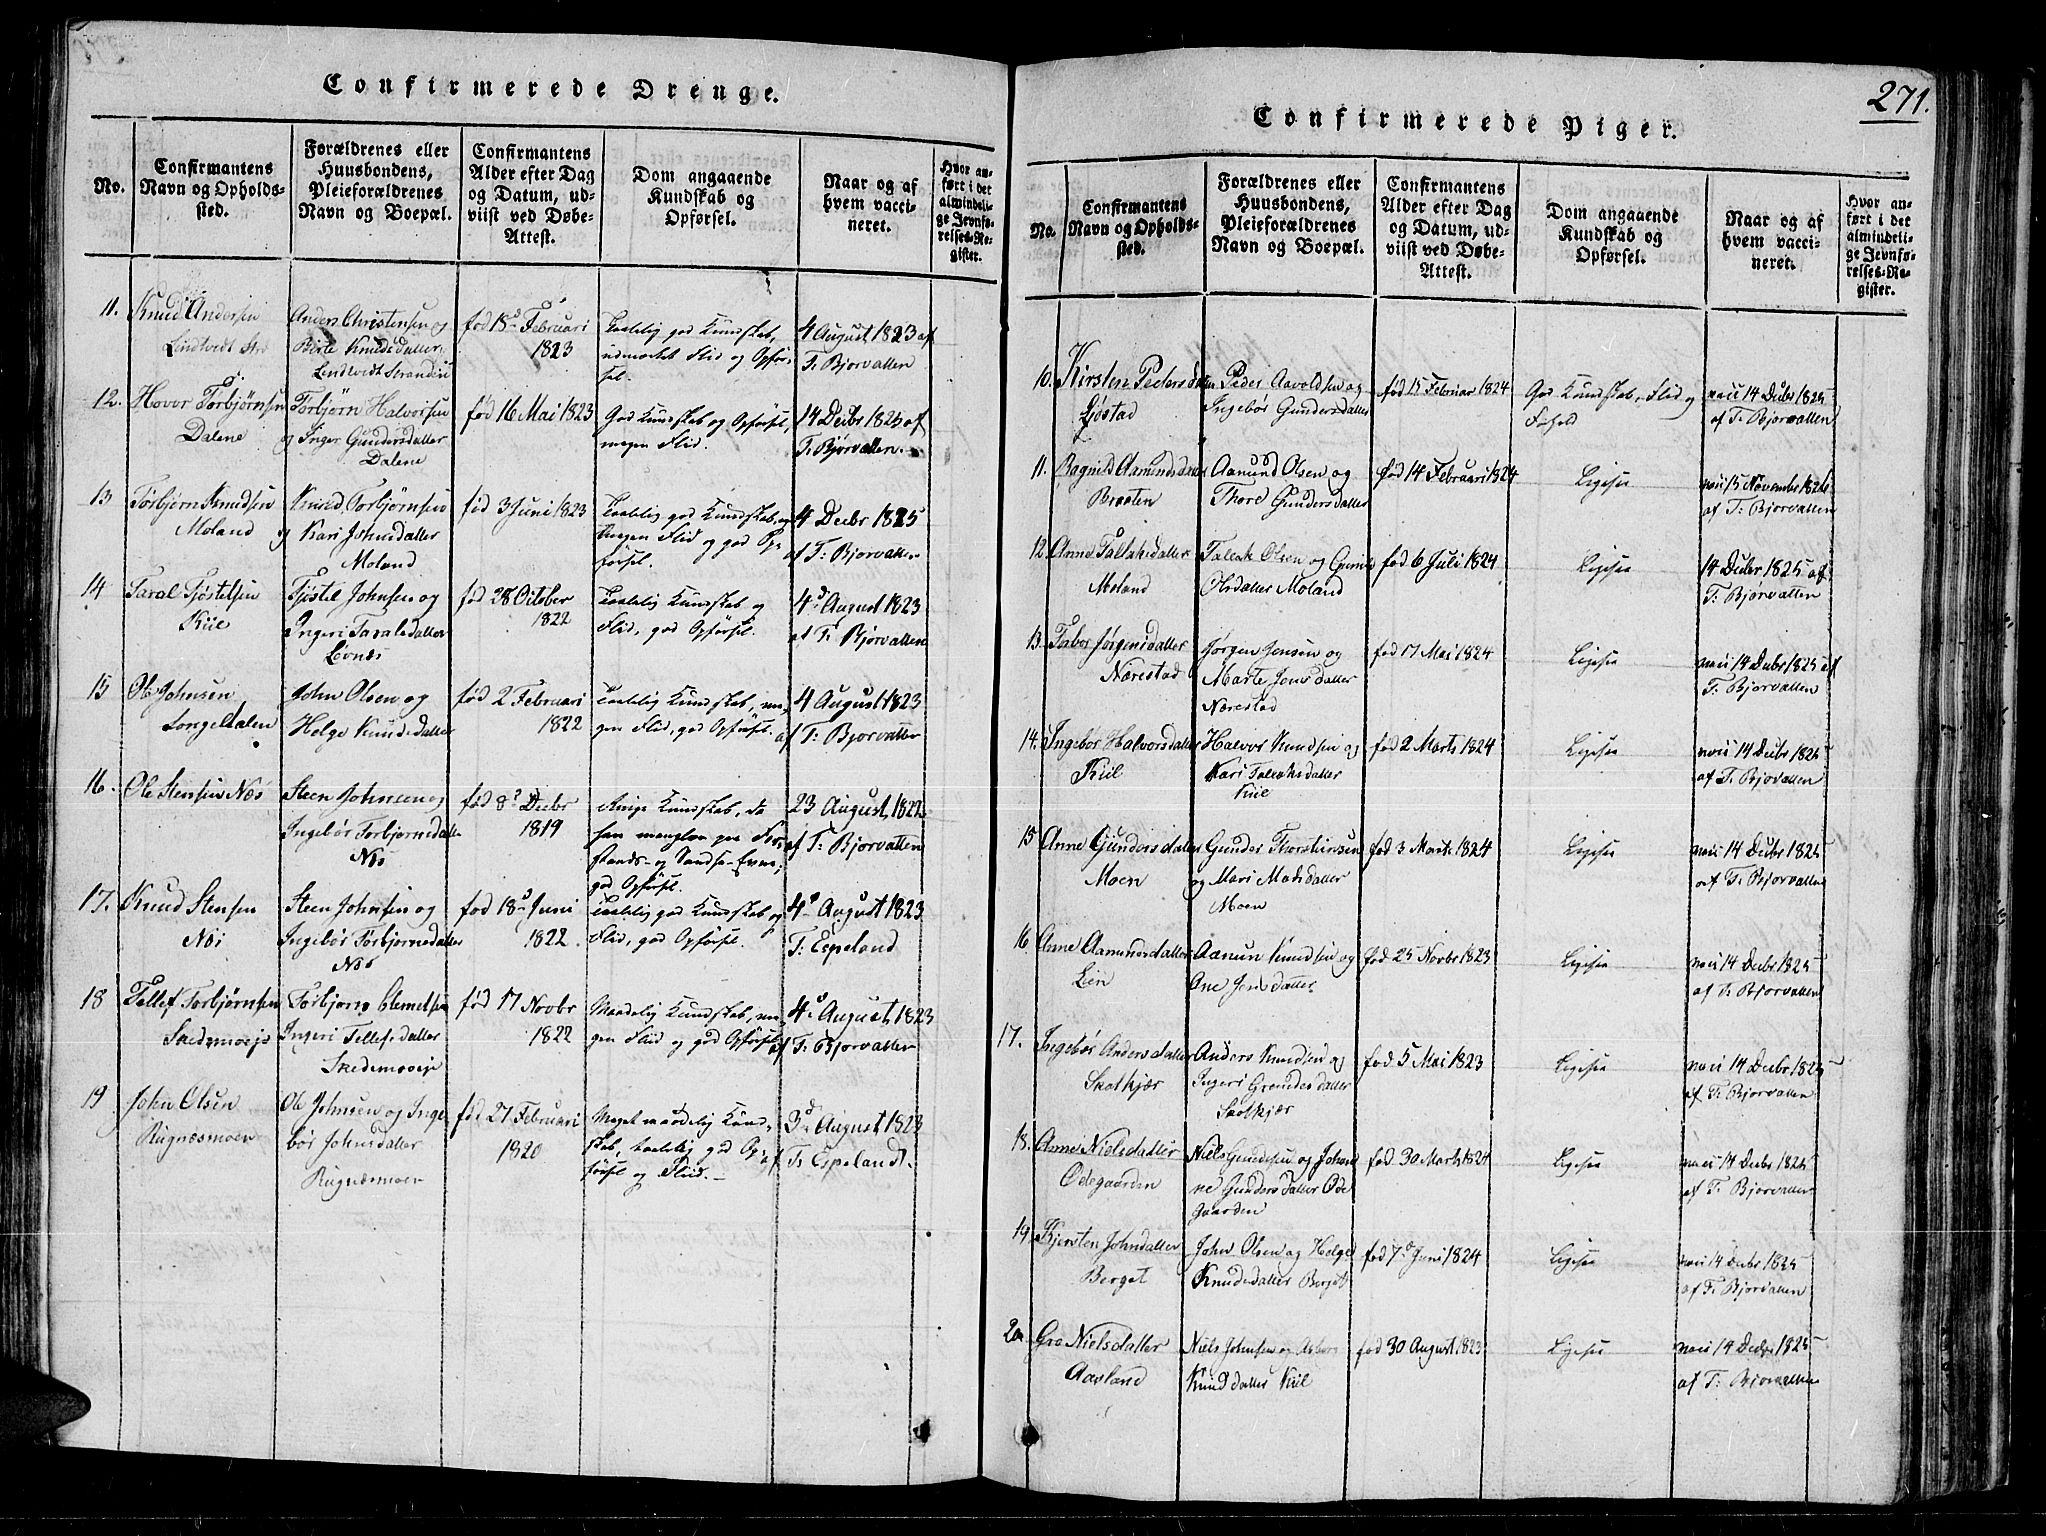 Confirmerede Drenge.
No.
Confirmantens
Navn og Opholds-
sted.
Forældrenes eller
Huusbondens,
Pleieforældrenes
Navn og Boepæl.
Confirmantens
Alder efter Dag
og Datum, ud-
viist ved Døbe-
Attest.
Dom angaaende
Kundskab og
Opførsel.
Naar og af
hvem vacci-
neret.
Hvor an-
ført i det
almindeli-
ge Jevnfø-
relses-Re-
gister.
11.
Knud Andersen
Lindtvedt
Anders Christensen og
Birte Knudsdatter
Lindtvedt Stranden
fød 18d Februari
1823
Taalelig god Kundskab,
udmærket Flid og Opfør-
sel.
4 August 1823 af
T. Bjorvatten
12.
Hovor Torbjørnsen
Dalene
Torbjørn Halvorsen
og Inger Gundersdatter
Dalene
fød 16 Mai 1823
God Kundskab og Opførsel,
megen Flid.
14 Decbr 1825 af
T. Bjørvatten.
13
Torbjørn Knudsen
Moland
Knud Torbjörnsen
og Kari Johnsdatter
Moland
fød 3 Juni 1823
Taalelig god Kundskab,
megen Flid og god Op-
førsel.
4 Decbr 1825
af T: Bjorvatten
14
Taral Tjøstelsen
Kiil
Tjøstel Johnsen og
Ingeri Taralsdatter
Løvnes
fød 28 October
1822
Taalelig Kundskab og
Flid, god Opførsel.
4d August 1823
af T: Bjørvatten
15
Ole Johnsen
Longeldalen
John Olsen og
Helge Knudsdatter
fød 2 Februari
1822
Taalelig Kundskab, me-
gen Flid, god Opførsel.
4 August 1823
af T: Bjorvatten
16.
Ole Stensen Næs
Steen Johnsen og
Ingebør Torbjornsdatter
Næs
fød 8d Decbr
1819
Ringe Kundskab, da
han mangler paa For-
stands- og Sandse-Evne;
god Opførsel.
23 August, 1822
af T: Bjorvatten
17.
Knud Stensen
Næs
Steen Johnsen og
Ingebør Torbjornsdatter
Næs
fød 18d Juni
1822.
Taalelig god Kundskab og
Flid, god Opførsel.
4d August 1823
T: Espeland
18
Tellef Torbjørnsen
Skedsmoeje
Torbjorn Clemetsen
Ingeri Tellefsdatter
Skedemoeje
fød 17 Novbr
1822
Maadelig Kundskab, me-
gen Fliid og god Opførsel
4d August, 1823
af T: Bjorvatten
19
John Olsen
Rugnæsmoen
Ole Johnsen og Inge
bør Johnsdatter
Rugnæsmoen
fød 27 Februari
1820
Meget maadelig Kund-
skab, taalelig god Op-
førsel og Fliid.
3d August 1823
af T: Espelandt.
271.
Confirmerede Piger.
No.
Confirmantens
Navn og Opholds-
sted.
Forældrenes eller
Huusbondens,
Pleieforældrenes
Navn og Boepæl.
Confirmantens
Alder efter Dag
og Datum, ud-
viist ved Døbe-
Attest.
Dom angaaende
Kundskab og
Opførsel.
Naar og af
hvem vacci-
neret.
Hvor an-
ført i det
almindeli-
ge Jevnfø-
relses-Re-
gister.
10.
Kirsten Pedersdatter
Ljøstad
Peder Aavoldsen og
Ingebør Gundersdatter
fød 15 Februar 1824
God Kundskab, Flid og
Forhold
vacc 14 Decbr 1825
af T. Bjorvatten
11.
Ragnild Aamundsdatter
Braaten
Aanund Olsen og
Thore Gundersdatter
fød 14 Februari 1824
Ligesaa
vacc 15 Novembr 1826
af T: Bjorvatten
12.
Anne Tallaksdatter
Moland
Talak Olsen og Gunild
Olsdatter Moland
fød 6 Juli 1824
Ligesaa
14 Decbr 1825 af
T. Bjørvatten
13.
Tabor Jørgensdatter
Nærestad
Jørgen Jensen og
Marte Jensdatter
Nærestad
fød 17 Mai 1824
Ligesaa
vacc 14 Decbr 1825 af
T. Bjørvatten
14.
Ingebør Halvorsdatter
Kiil
Halvor Knudsen og
Kari Talaksdatter
Kiil
fød 2 Marts 1824
Ligesaa
vacc 14 Decbr 1825
af T. Bjorvatten
15
Anne Gundersdatter
Moen
Gunder Thorstensen
og Mari Madsdatter
Moen
fød 3 Marts 1824
Ligesaa
vacc 14 Decbr 1825
af T. Bjorvatten
16
Anne Aamundsdatter
Lien
Aanun Knudsen og
Ane Jensdatter
fød 25 Novbr 1823
Ligesaa
vacc 14 Decbr 1825
af T. Bjorvatten
17.
Ingebør Andersdatter
Skotkjær
Anders Knudsen og
Ingeri Grundesdatter
Skotkjær
fød 5 Mai 1823
Ligesaa
vacc 14 Decbr 1825
af T. Bjorvatten
18.
Anne Nielsdatter
Ødegaarden
Niels Gundersen og Johan
ne Gundersdatter Øde
gaarden
fød 30 Marts 1824
Ligesaa
vacc 14 Decbr 1825
af T. Bjorvatten
19.
Kjersten Johnsdatter
Berget
John Olsen og Helge
Knudsdatter Berget
fød 7d Juni 1824
Ligesaa
vacc 14 Decbr 1825
af T. Bjorvatten
20
Gro Nielsdatter
Aasland
Niels Johnsen og Asbor
Knudsdatter Kiil
fød 30 August 1823
Ligesaa
vacc 14 Decbr 1825
af T: Bjorvatten